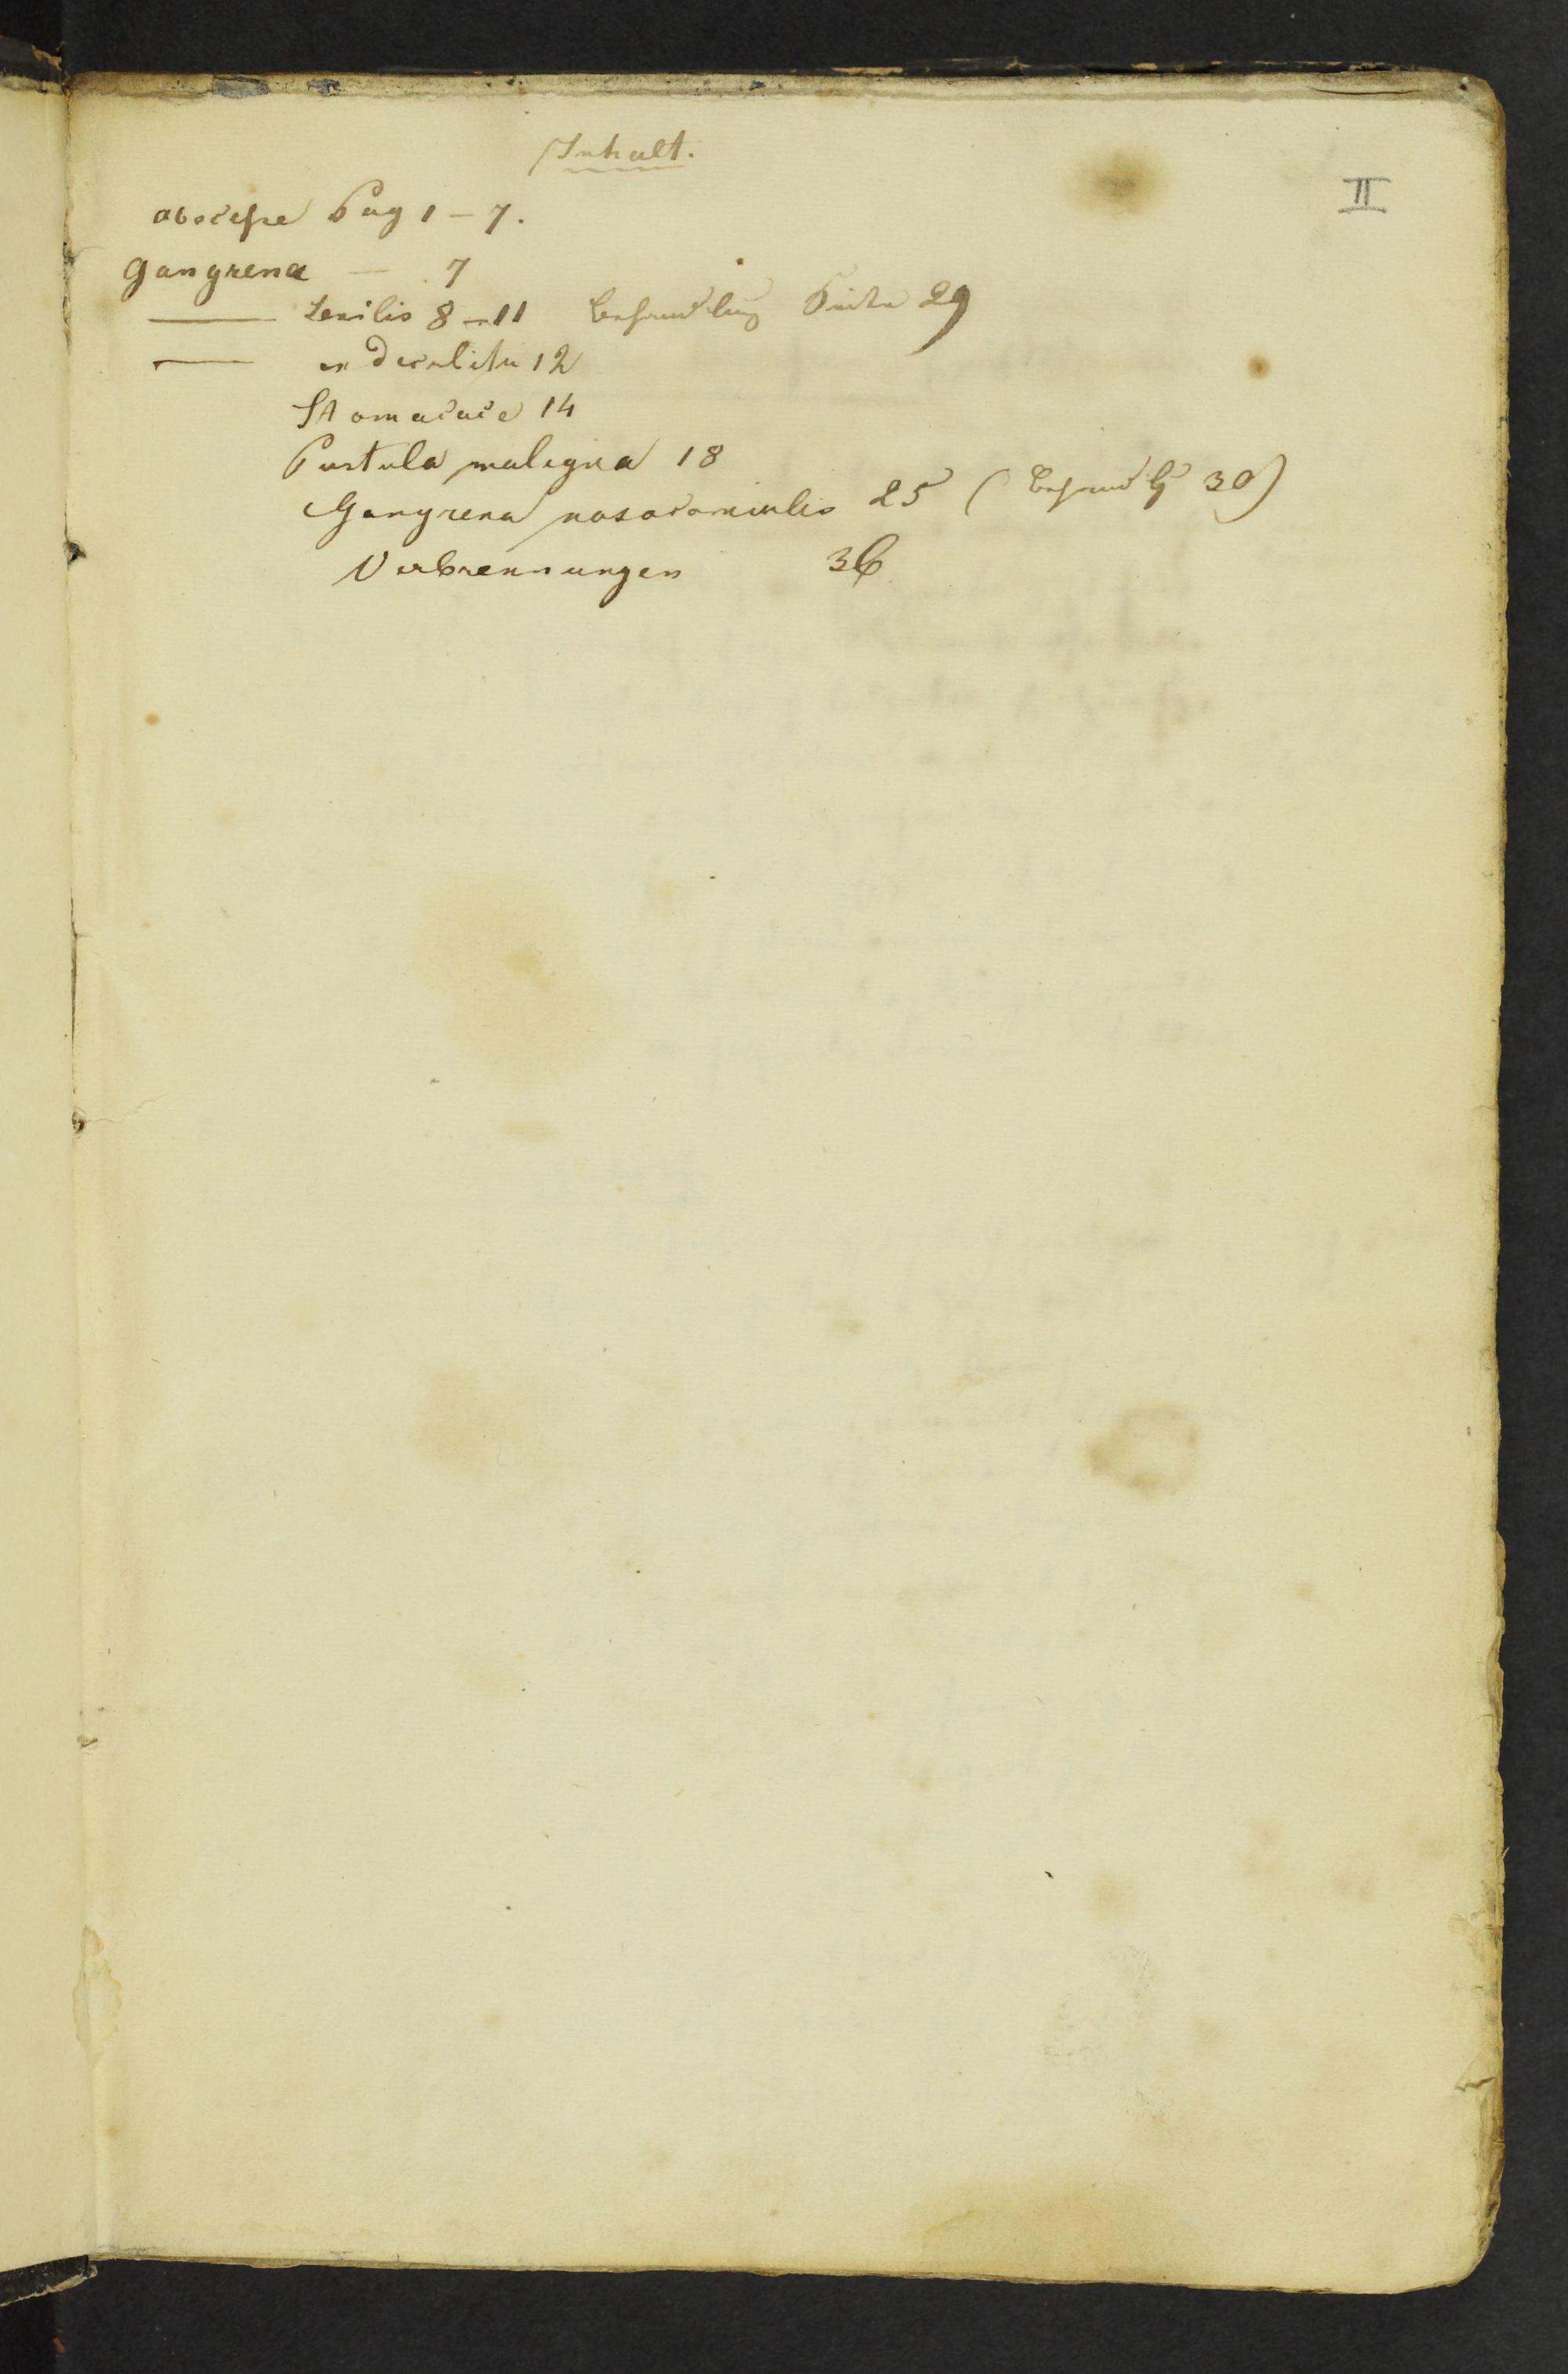 Inhalt.
II
abscesse Pag 1 – 7.
Gangrena — 7
—— senilis 8 – 11 Behandlung Seite 29
—— ex decubitu 12
Stomacace 14
Pustula maligna 18
Gangrena nosocomialis 25 (Behandlg 30)
Verbrennungen 36